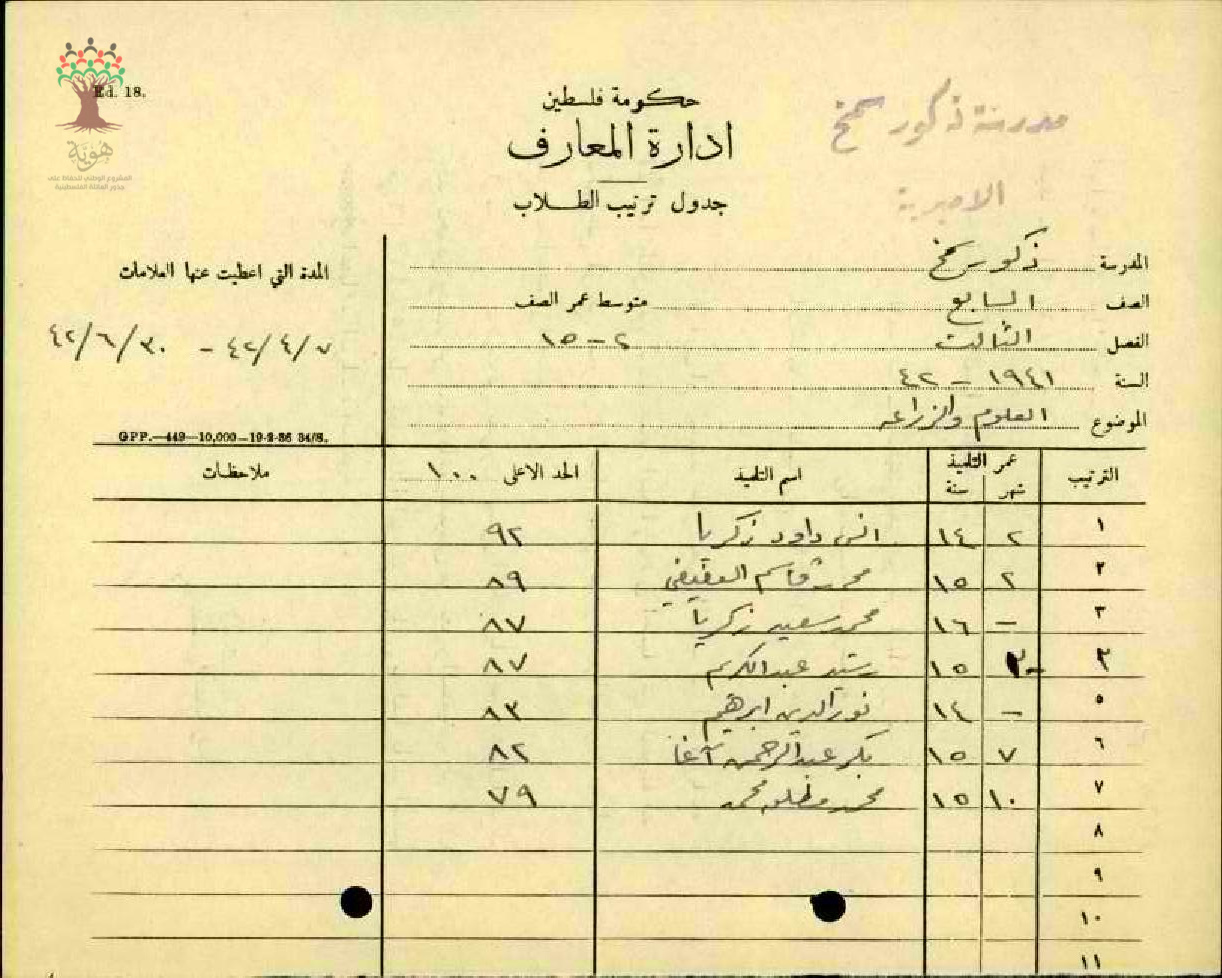 Ed. 18.
حكومة فلسطين
ادارة المعارف
جدول ترتيب الطلاب
مدرسة ذكور سمخ
الاميرية
هوية
المشروع الوطني للحفاظ على
جذور العائلة الفلسطينية
المدرسة ذكور سمخ
الصف السابع متوسط عمر الصف
الفصل الثالث ٢ - ١٥
السنة ١٩٤١ - ٤٢
الموضوع العلوم والزراعة
المدة التي اعطيت عنها العلامات
٤٢/٤/٧ - ٤٢/٦/٣٠
GPP.—449—10,000—19-2-36 34/S.
الترتيب عمر التلميذ اسم التلميذ الحد الاعلى ١٠٠ ملاحظات
شهر سنة
١ ٢ ١٤ انس داود زكريا ٩٢
٢ ٢ ١٥ محمد قاسم العفيفي ٨٩
٣ - ١٦ محمد سعيد زكريا ٨٧
٣ ١٥ رشيد عبدالكريم ٨٧
٥ - ١٤ نورالدين ابرهيم ٨٣
٦ ٧ ١٥ بكر عبدالرحمن آغا ٨٢
٧ ١٠ ١٥ محمد مظلوم محمد ٧٩
٨
٩
١٠
١١